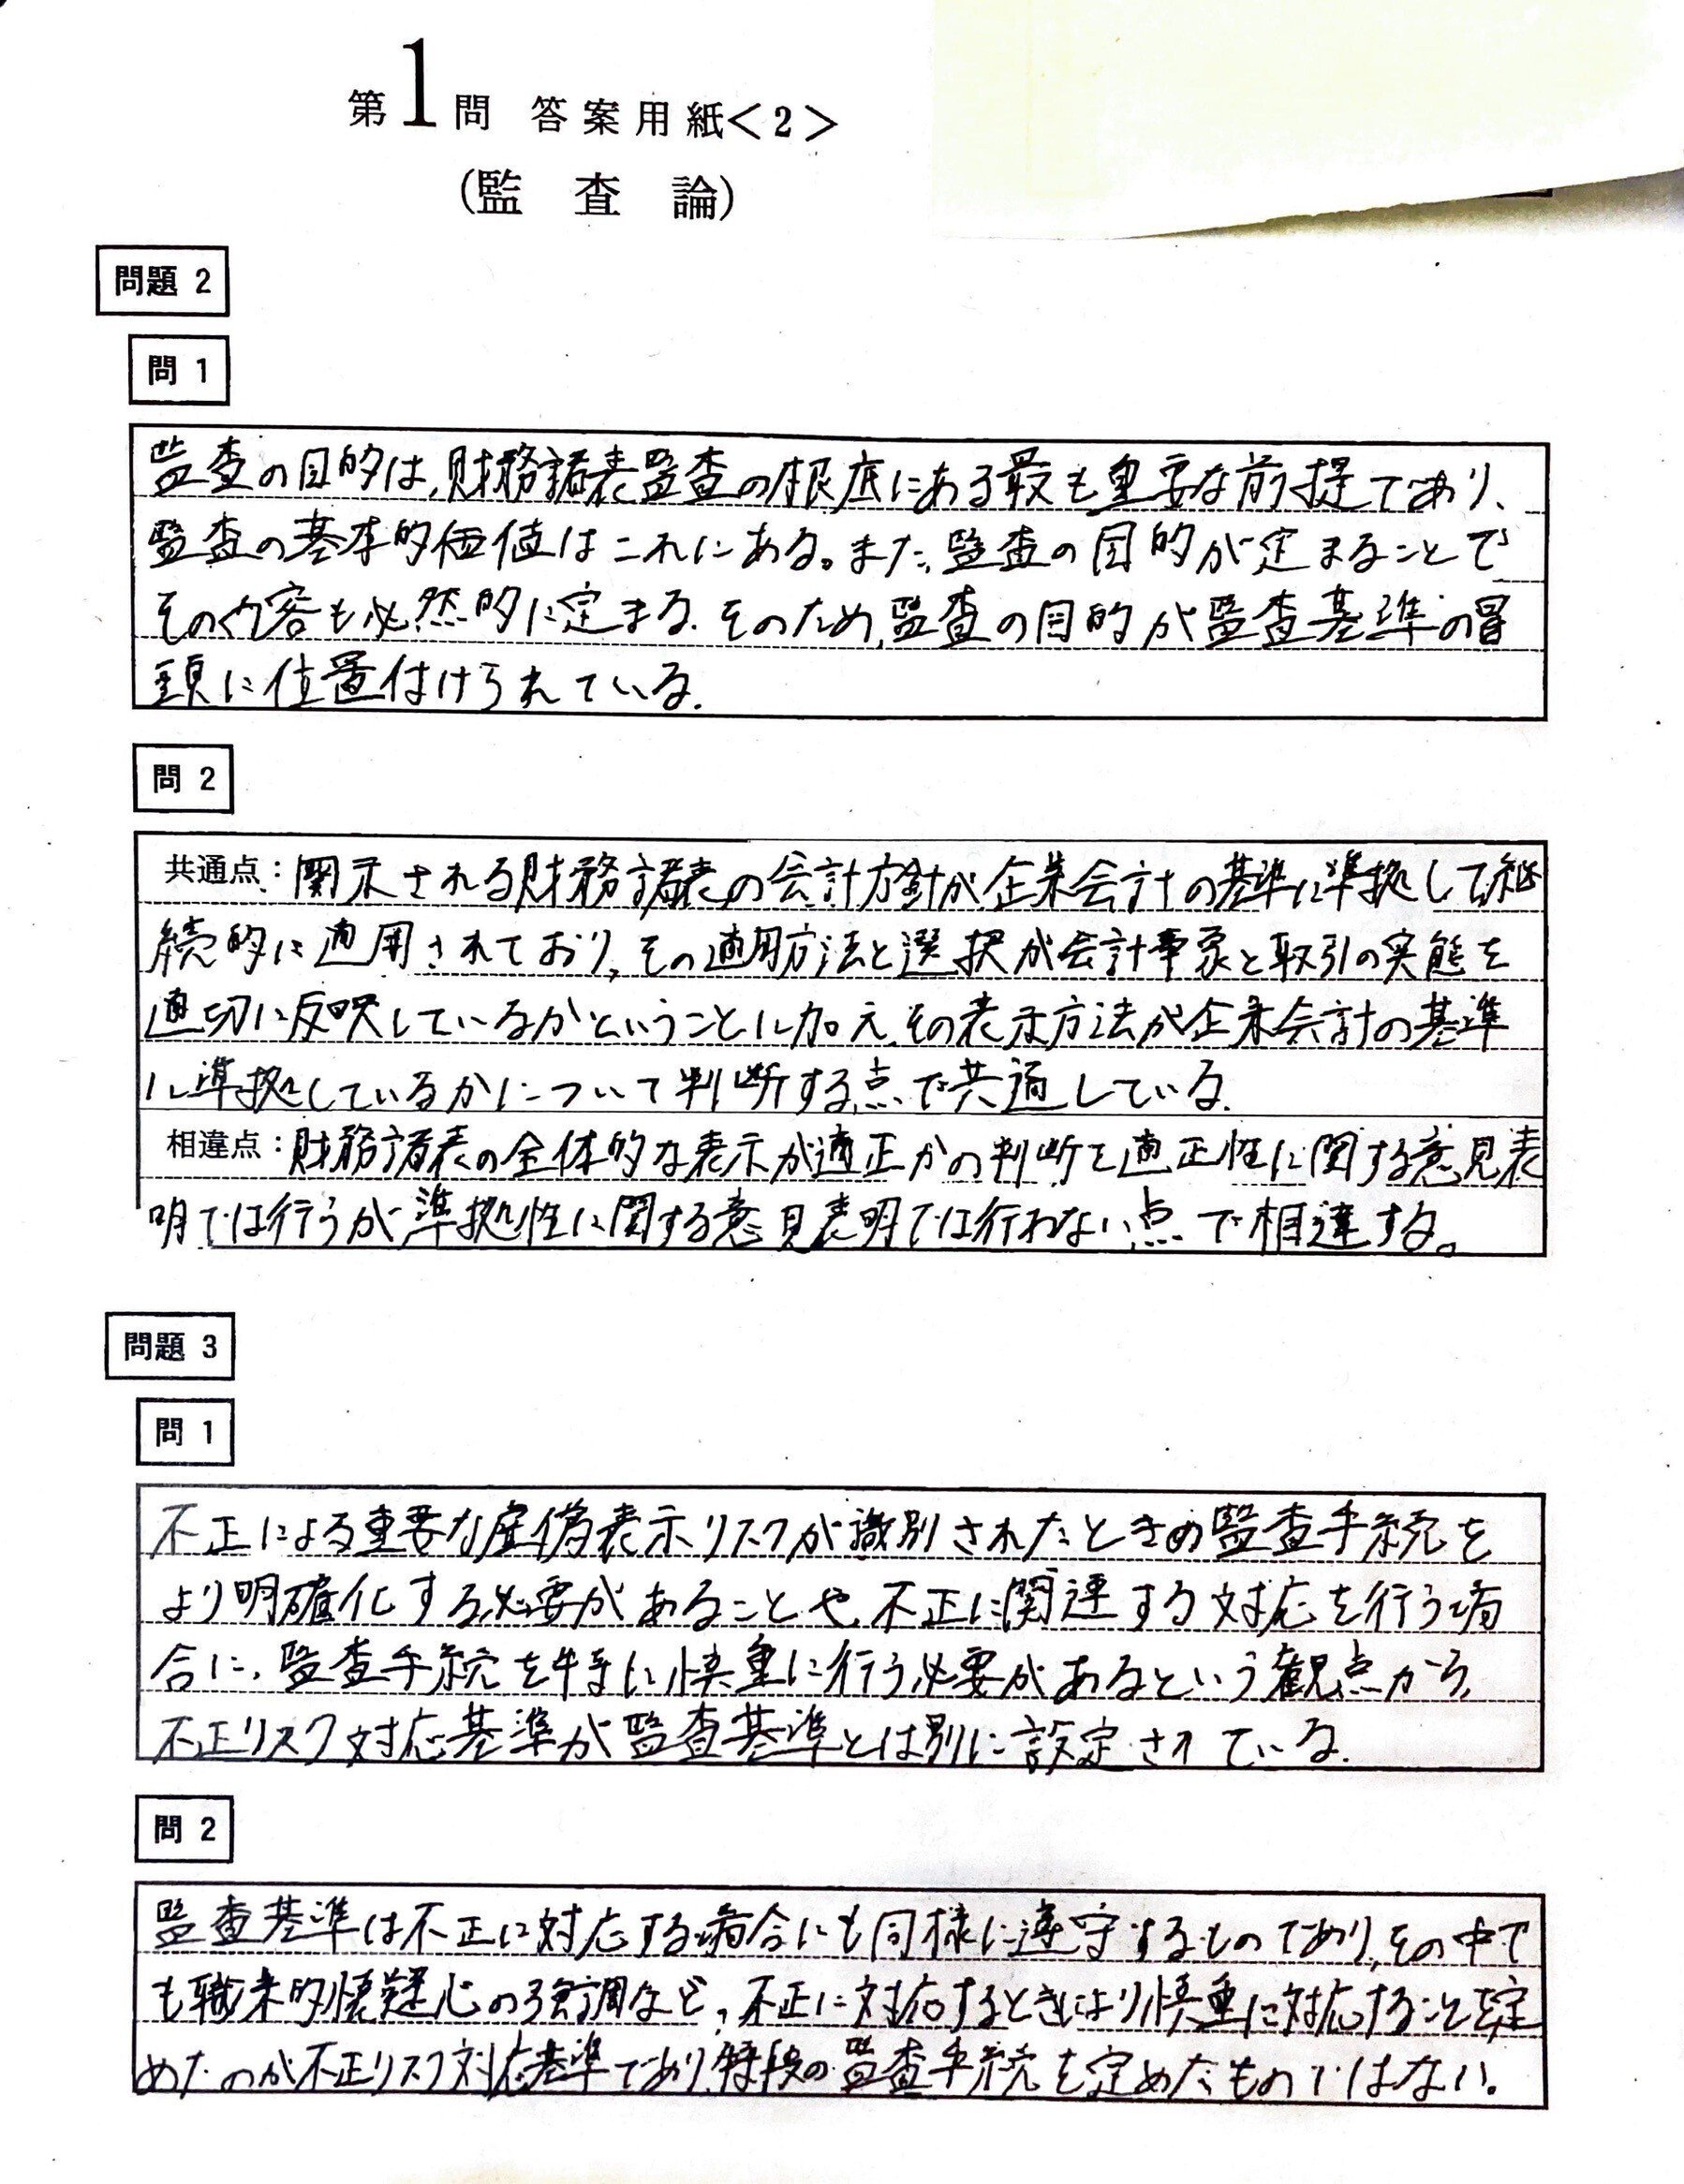 第1問 答案用紙<2>
(監査論)
問題 2
問 1
監査の目的は、財務諸表監査の根底にある最も重要な前提であり、
監査の基本的価値はこれにある。また、監査の目的が定まることで
その内容も必然的に定まる。そのため、監査の目的が監査基準の冒
頭に位置付けられている。
問 2
共通点：開示される財務諸表の会計方針が企業会計の基準に準拠して継
続的に適用されており、その適用方法と選択が会計事象と取引の実態を
適切に反映しているかということに加え、その表示方法が企業会計の基準
に準拠しているかについて判断する点で共通している。
相違点：財務諸表の全体的な表示が適正かの判断を適正性に関する意見表
明では行うが準拠性に関する意見表明では行わない点で相違する。
問題 3
問 1
不正による重要な虚偽表示リスクが識別されたときの監査手続を
より明確化する必要があることや、不正に関連する対応を行う場
合に、監査手続を特に慎重に行う必要があるという観点から、
不正リスク対応基準が監査基準とは別に設定されている。
問 2
監査基準は不正に対応する場合にも同様に遵守するものであり、その中で
も職業的懐疑心の強調など、不正に対応するときにより慎重に対応することを定
めたのが不正リスク対応基準であり、特段の監査手続を定めたものではない。